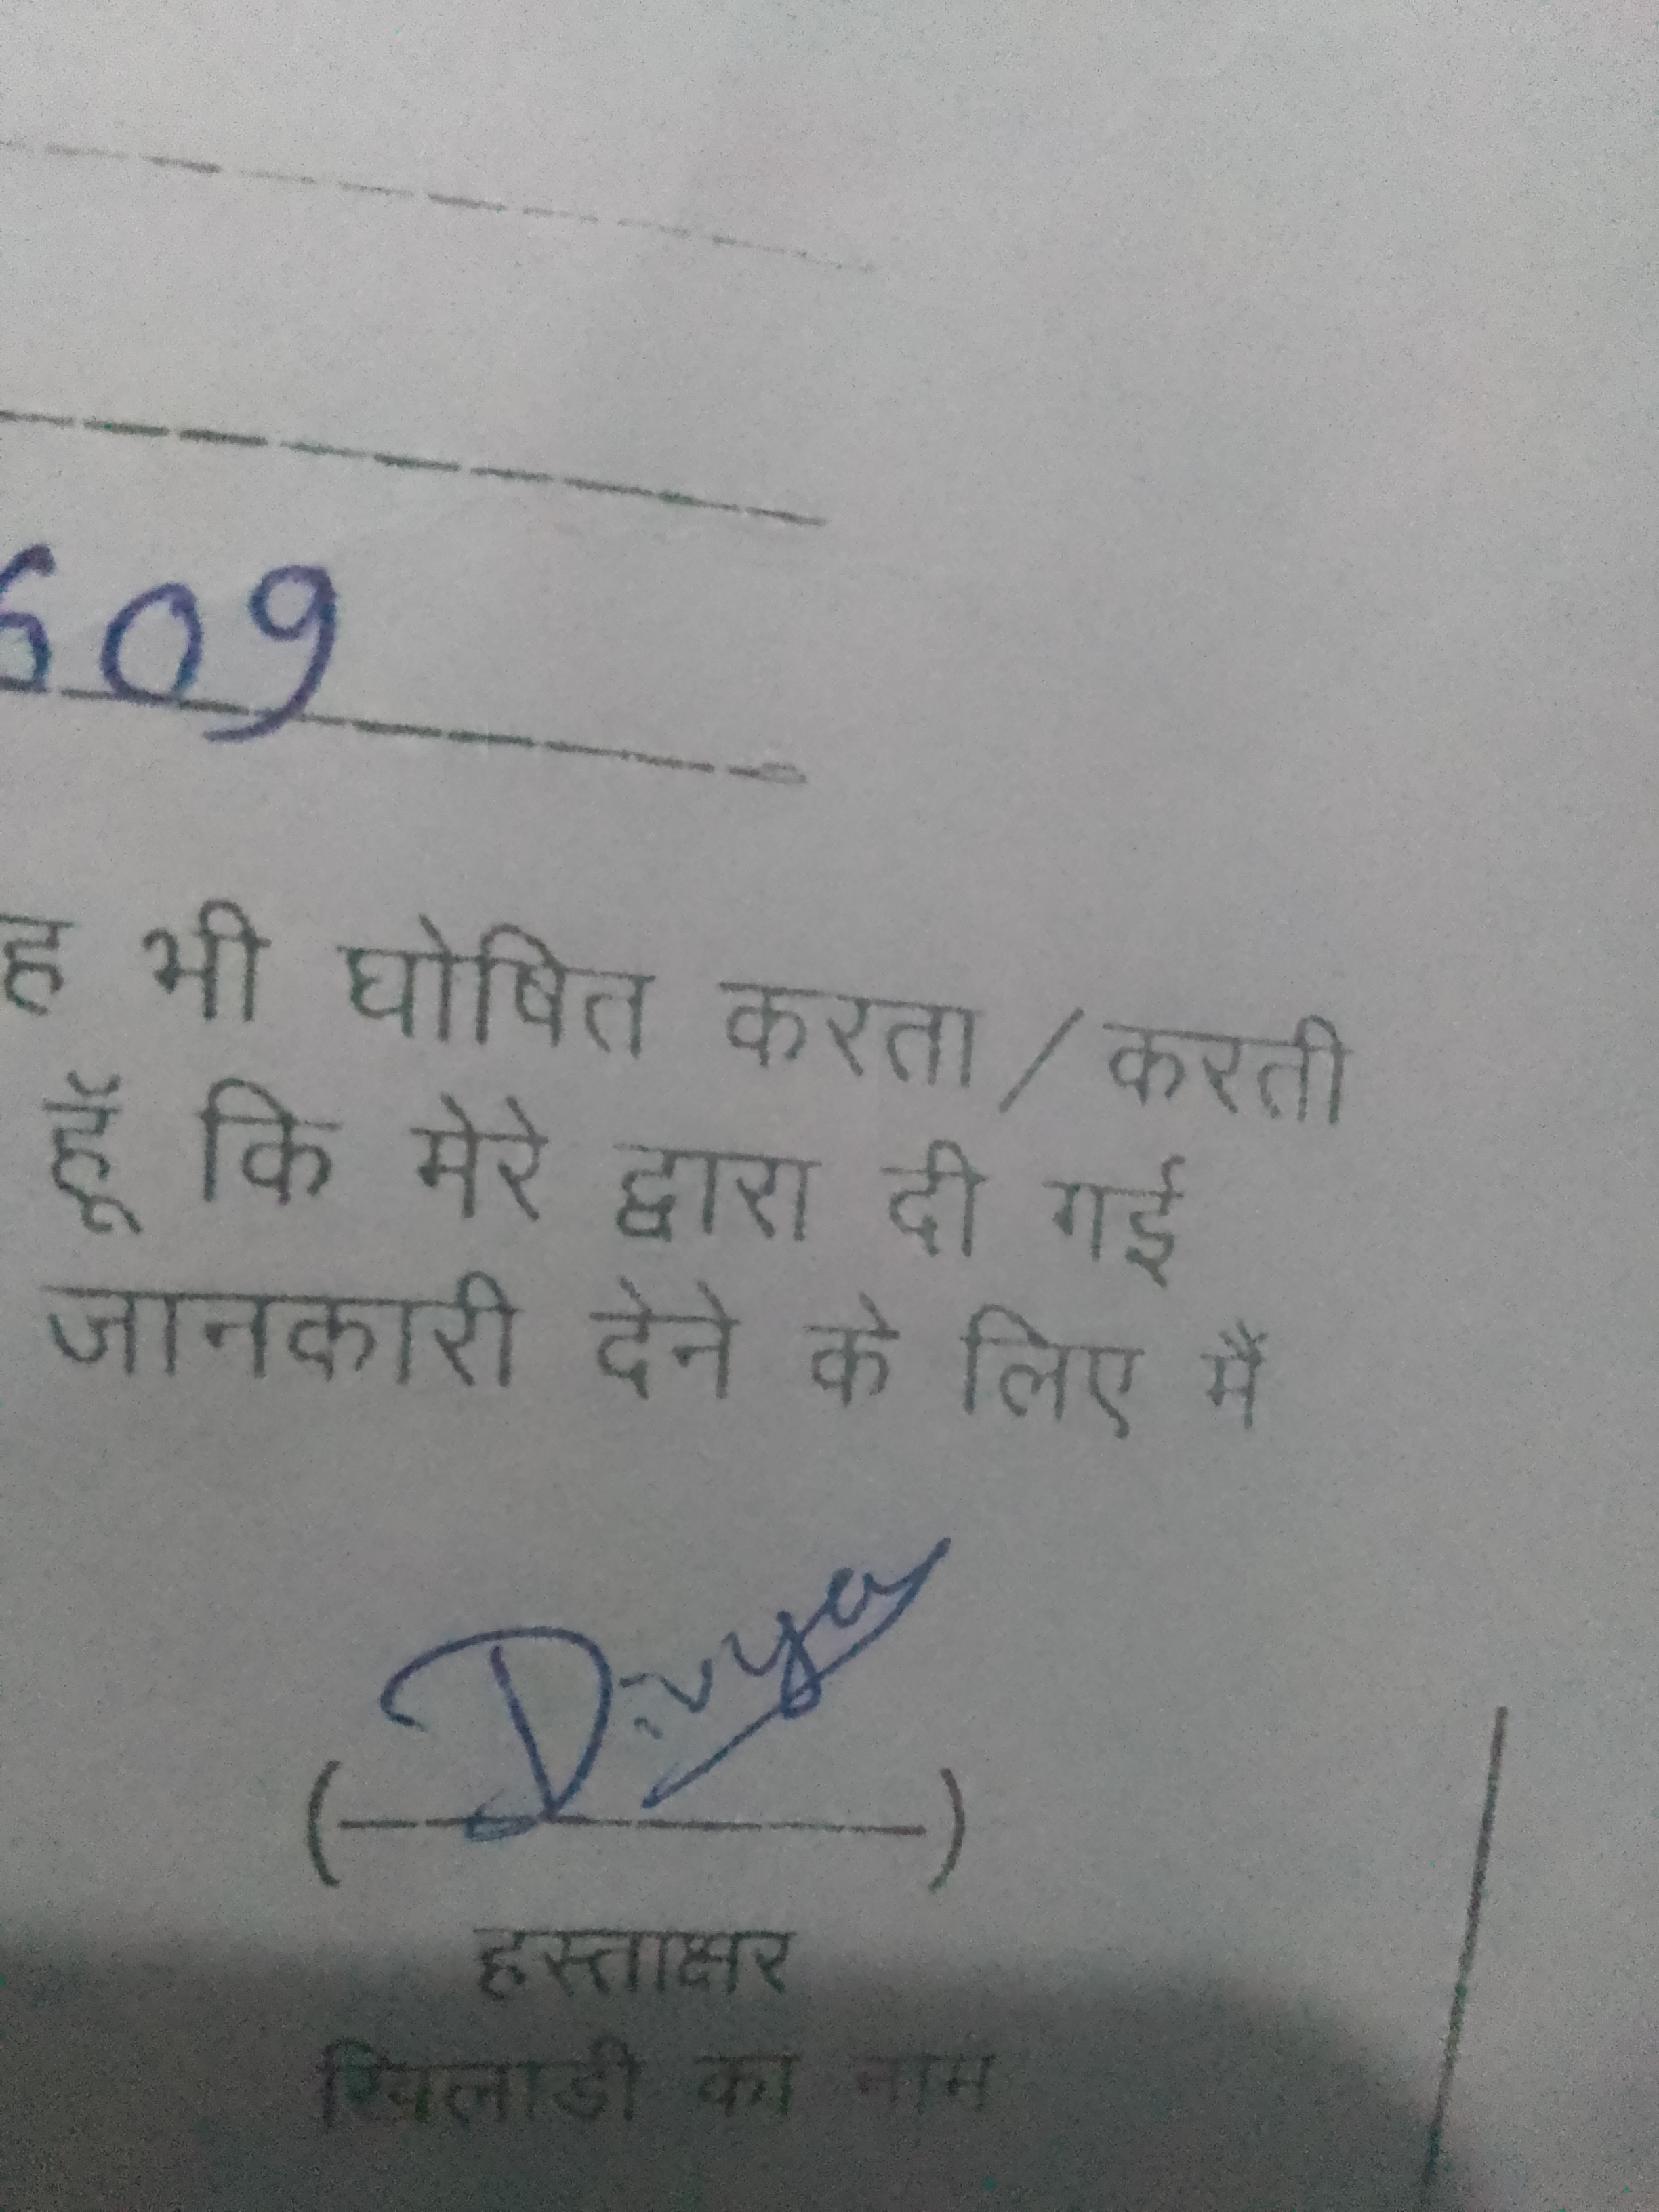 609
ह भी घोषित करता / करती
हूँ कि मेरे द्वारा दी गई
जानकारी देने के लिए मैं
Divya
(---------)
हस्ताक्षर
खिलाडी का नाम